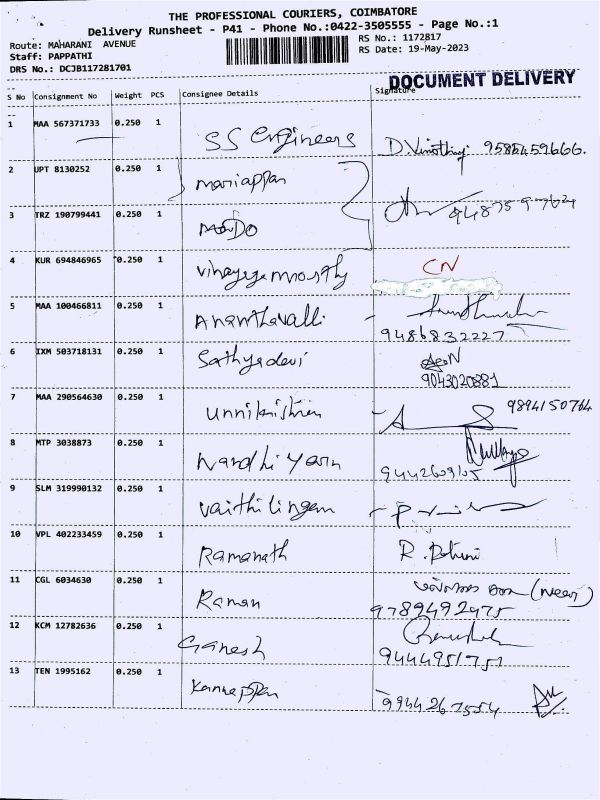 THE PROFESSIONAL COURIERS, COIMBATORE
Delivery Runsheet - P41 - Phone No.:0422-3505555 - Page No.:1
Route: MAHARANI AVENUE
RS No.: 1172817
Staff: PAPPATHI
RS Date: 19-May-2023
DRS No.: DCJB117281701
DOCUMENT DELIVERY
S No Consignment No Weight PCS Consignee Details Signature
1 MAA 567371733 0.250 1 SS Engineers 9585459666
2 UPT 8130252 0.250 1 mariappan
3 TRZ 190799441 0.250 1
4 KUR 694846965 0.250 1 CN
5 MAA 100466811 0.250 1 Ananthavalli
9486832227
6 IXM 503718131 0.250 1 Sathyadevi
9043020881
7 MAA 290564630 0.250 1 unnikrishnan 9894150764
8 MTP 3038873 0.250 1
9 SLM 319990132 0.250 1 vaithilingam
10 VPL 402233459 0.250 1 Ramanath
11 CGL 6034630 0.250 1 Raman
9789492975
12 KCM 12782636 0.250 1 Ganesh
9444951751
13 TEN 1995162 0.250 1 Kannappan
9944267554